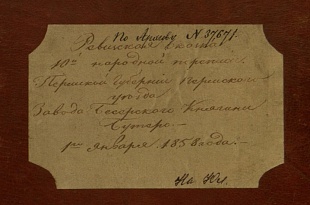 По Архиву N 37671.
Ревизская сказка
10й народной переписи
Пермской Губернии Пермского
уезда
Завода Бисерского Княгини
Бутеро.—
1го Января 1858 года.—